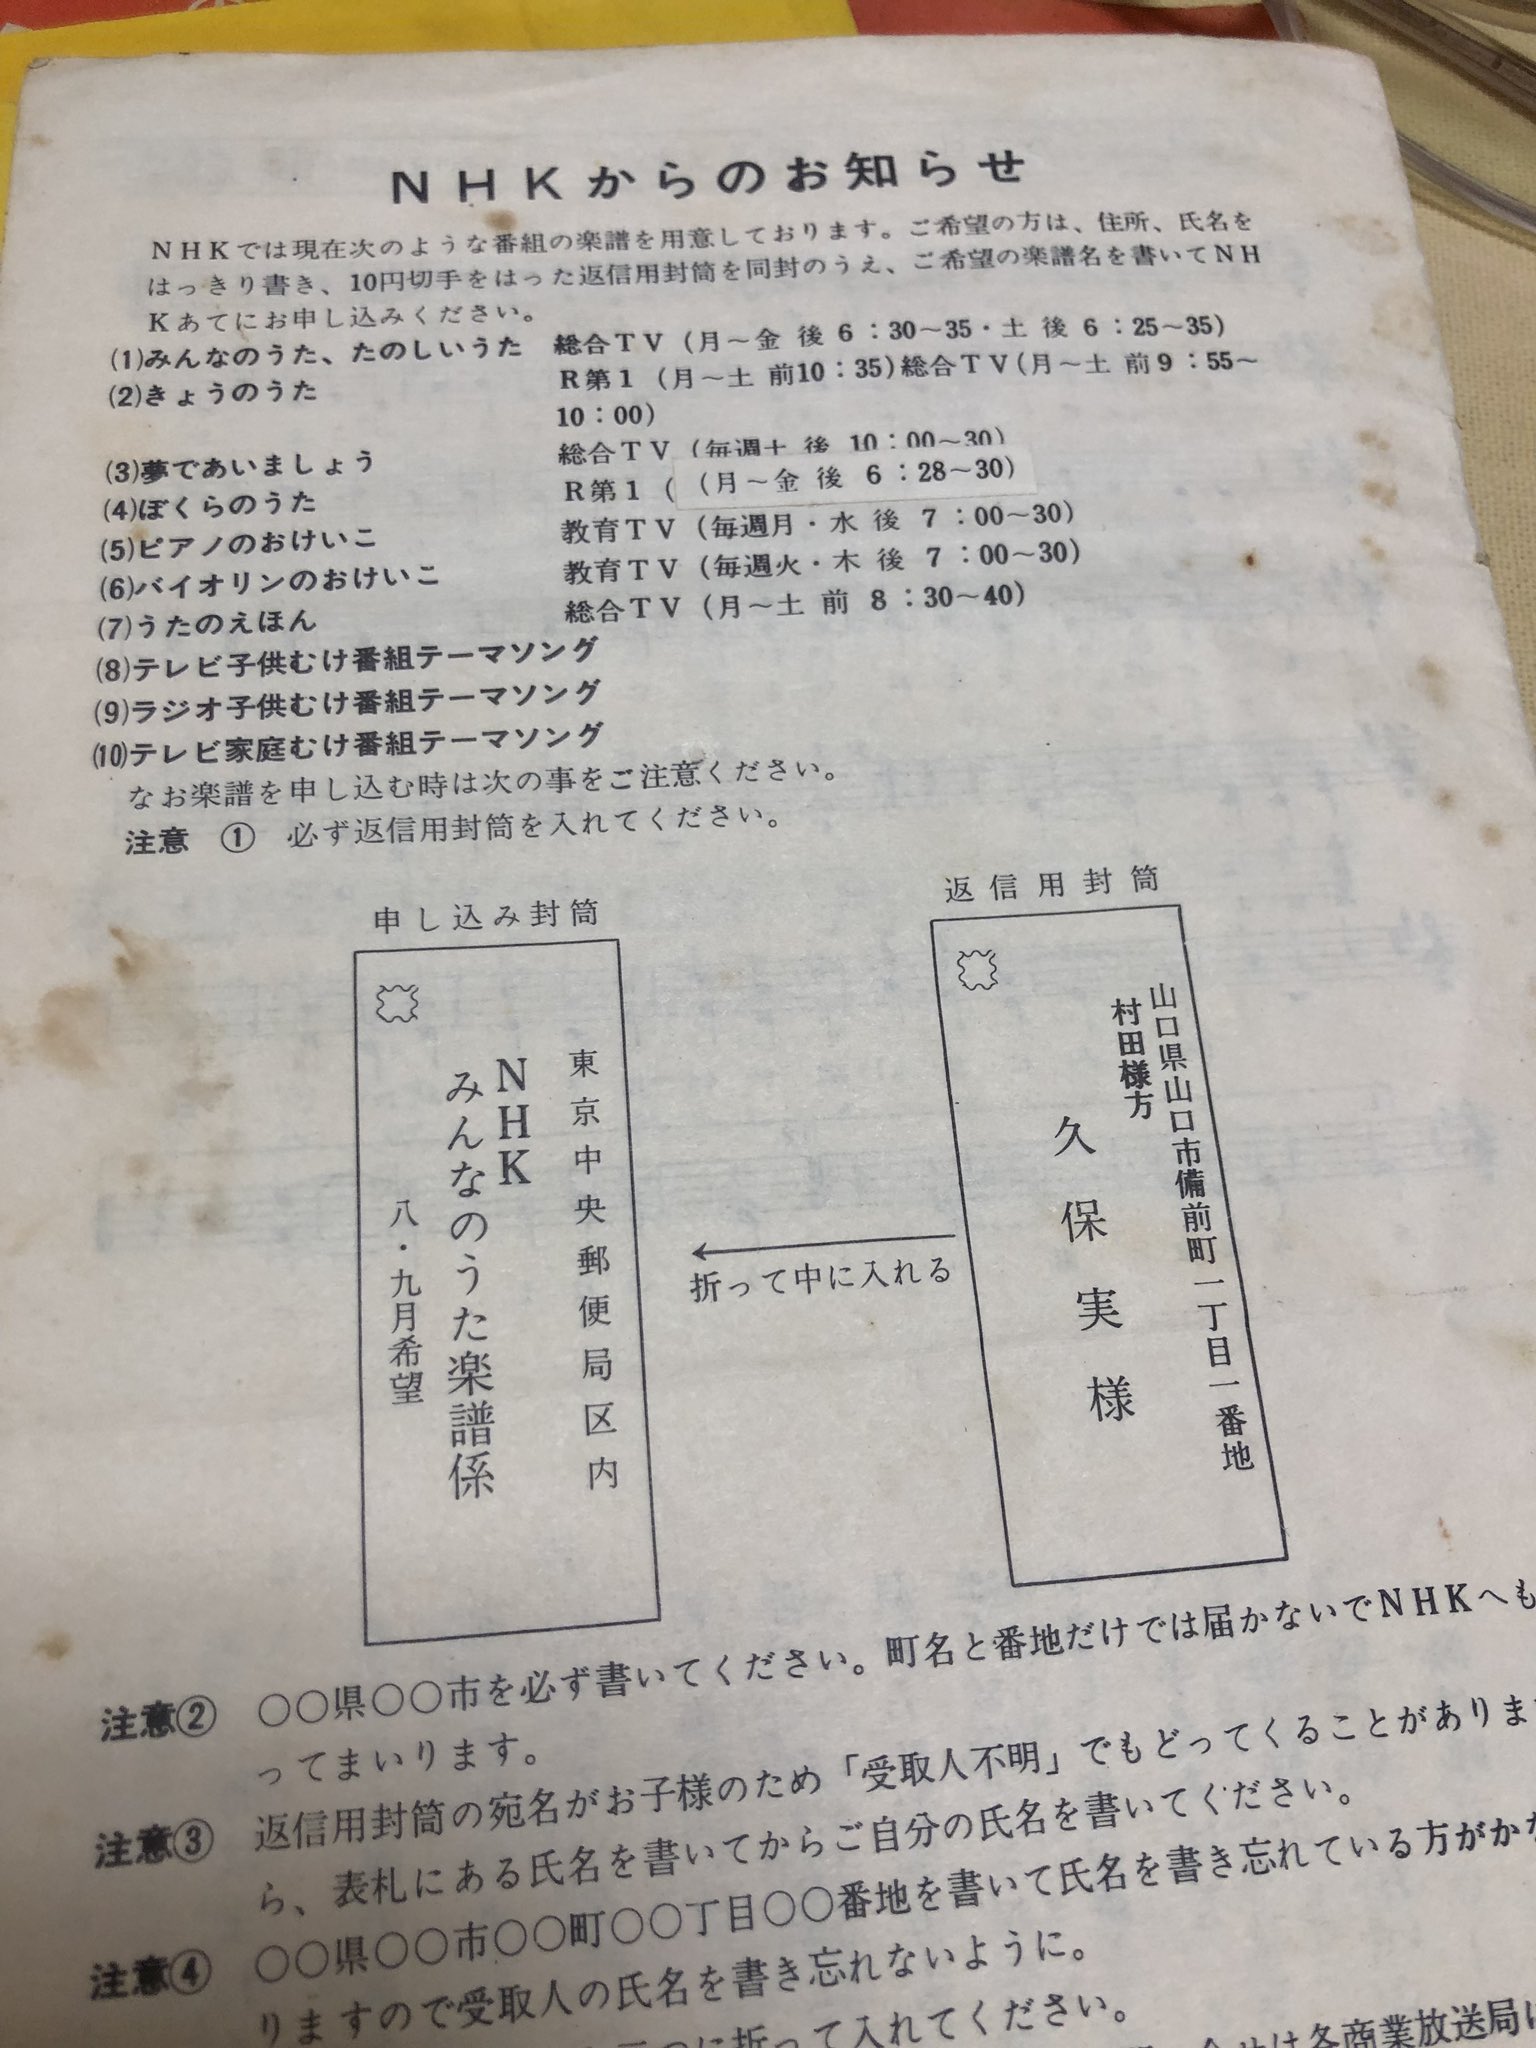 NHKからのお知らせ
NHKでは現在次のような番組の楽譜を用意しております。ご希望の方は、住所、氏名を
はっきり書き、10円切手をはった返信用封筒を同封のうえ、ご希望の楽譜名を書いてNH
Kあてにお申し込みください。
(1)みんなのうた、たのしいうた 総合TV(月〜金 後6:30〜35・土 後6:25〜35)
(2)きょうのうた R第1(月〜土 前10:35)総合TV(月〜土 前9:55〜
10:00)
(3)夢であいましょう 総合TV(毎週土 後10:00〜30)
(4)ぼくらのうた R第1( (月〜金 後6:28〜30)
(5)ピアノのおけいこ 教育TV(毎週月・水 後7:00〜30)
(6)バイオリンのおけいこ 教育TV(毎週火・木 後7:00〜30)
(7)うたのえほん 総合TV(月〜土 前8:30〜40)
(8)テレビ子供むけ番組テーマソング
(9)ラジオ子供むけ番組テーマソング
(10)テレビ家庭むけ番組テーマソング
なお楽譜を申し込む時は次の事をご注意ください。
注意 ① 必ず返信用封筒を入れてください。
申し込み封筒
東京中央郵便局区内
NHK
みんなのうた楽譜係
八・九月希望
折って中に入れる
返信用封筒
山口県山口市備前町一丁目一番地
村田様方
久保実様
注意② ○○県○○市を必ず書いてください。町名と番地だけでは届かないでNHKへも
ってまいります。
注意③ 返信用封筒の宛名がお子様のため「受取人不明」でもどってくることがありま
ら、表札にある氏名を書いてからご自分の氏名を書いてください。
注意④ ○○県○○市○○町○○丁目○○番地を書いて氏名を書き忘れている方がかな
りますので受取人の氏名を書き忘れないように。
つに折って入れてください。
せは各商業放送局に